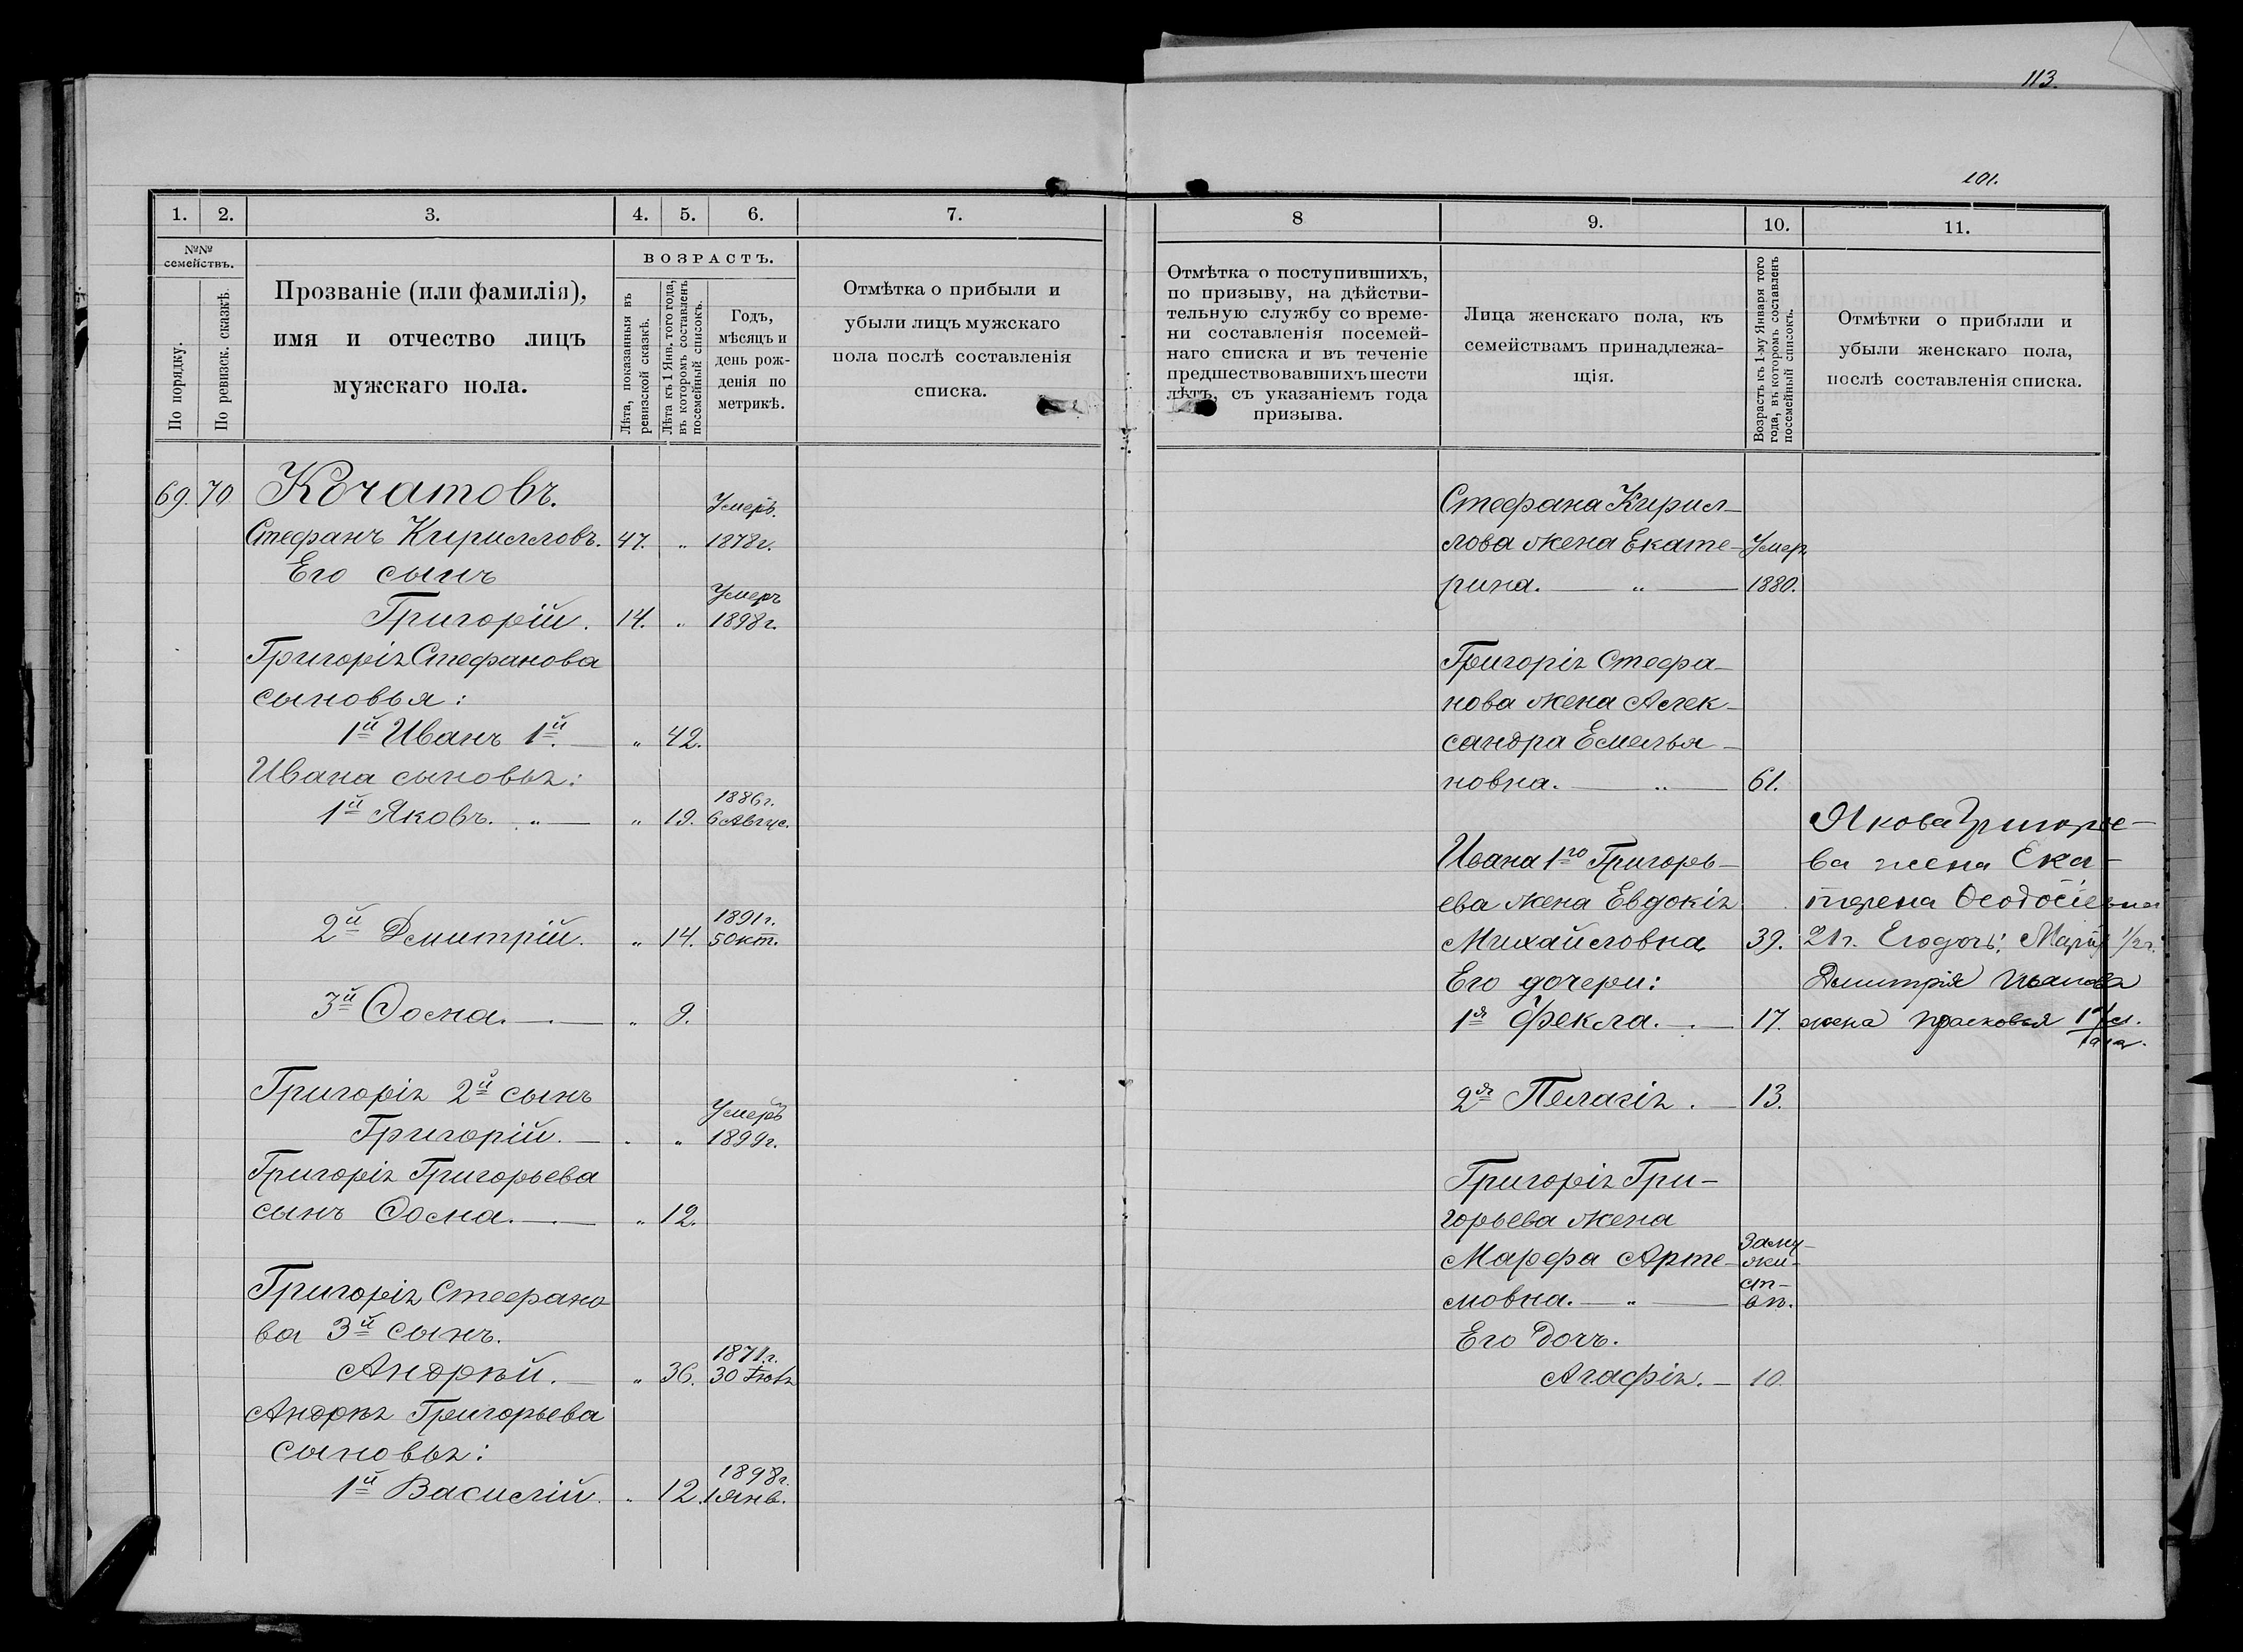 113.
101.
1.
2.
3.
4.
5.
6.
7.
№№ семействъ.
По порядку.
По ревизск. сказкѣ.
Прозваніе (или фамилія),
имя и отчество лицъ
мужскаго пола.
ВОЗРАСТЪ.
Лѣта, показанныя въ
ревизской сказкѣ.
Лѣта къ 1 Янв. того года,
въ которомъ составленъ
посемейный списокъ.
Годъ,
мѣсяцъ и
день рож-
денія по
метрикѣ.
Отмѣтка о прибыли и
убыли лицъ мужскаго
пола послѣ составленія
списка.
69. 70 Кочатовъ.
Умеръ.
Стефанъ Кирилловъ. 47. " 1878г.
Его сынъ
Умеръ
Григорій. 14. " 1898г.
Григорія Стефанова
сыновья:
1й Иванъ 1й. " 42.
Ивана сыновья:
1886г.
1й Яковъ. " " 19. 6 Авгус.
1891г.
2й Дмитрій. " 14. 5 Окт.
3й Ѳома. " 9.
Григорія 2й сынъ
Умеръ
Григорій. " " 1899г.
Григорія Григорьева
сынъ Ѳома. " 12.
Григорія Стефано
ва 3й сынъ.
1871г.
Андрѣй. " 36. 30 Іюля
Андрѣя Григорьева
сыновья:
1898г.
1й Василій. " 12. 1 Янв.
8
9.
10.
11.
Отмѣтка о поступившихъ,
по призыву, на дѣйстви-
тельную службу со време-
ни составленія посемей-
наго списка и въ теченіе
предшествовавшихъ шести
лѣтъ, съ указаніемъ года
призыва.
Лица женскаго пола, къ
семействамъ принадлежа-
щія.
Возрастъ къ 1-му Января того
года, въ которомъ составленъ
посемейный списокъ.
Отмѣтки о прибыли и
убыли женскаго пола,
послѣ составленія списка.
Стефана Кирил-
лова жена Екате- Умер
рина. " 1880.
Григорія Стефа-
нова жена Алек-
сандра Емелья-
новна. " 61.
Ивана 1го Григорь-
ева жена Евдокія
Михайловна 39.
Его дочери:
1я Фекла. 17.
2я Пелагія. 13.
Григорія Гри-
горьева жена
Марфа Арте-
мовна. "
Заму-
жи-
ст-
вѣ.
Его дочь.
Агафія. 10.
Якова Григорье-
ва жена Ека-
терена Ѳеодосіевна
21г. Его дочь: Марія 1/2г.
Дмитрія Иванова
жена Прасковья